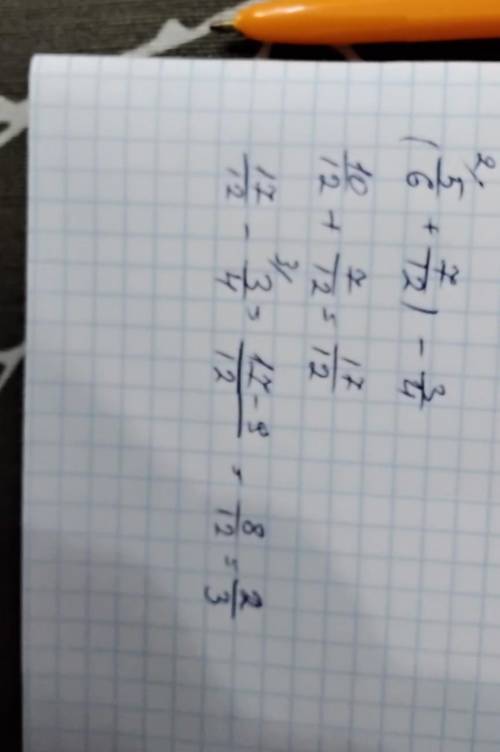 (²⁄5/6 + 7/12) - 3/4
10/12 + 7/12 = 17/12
17/12 - ³⁄3/4 = 17-9/12 = 8/12 = 2/3